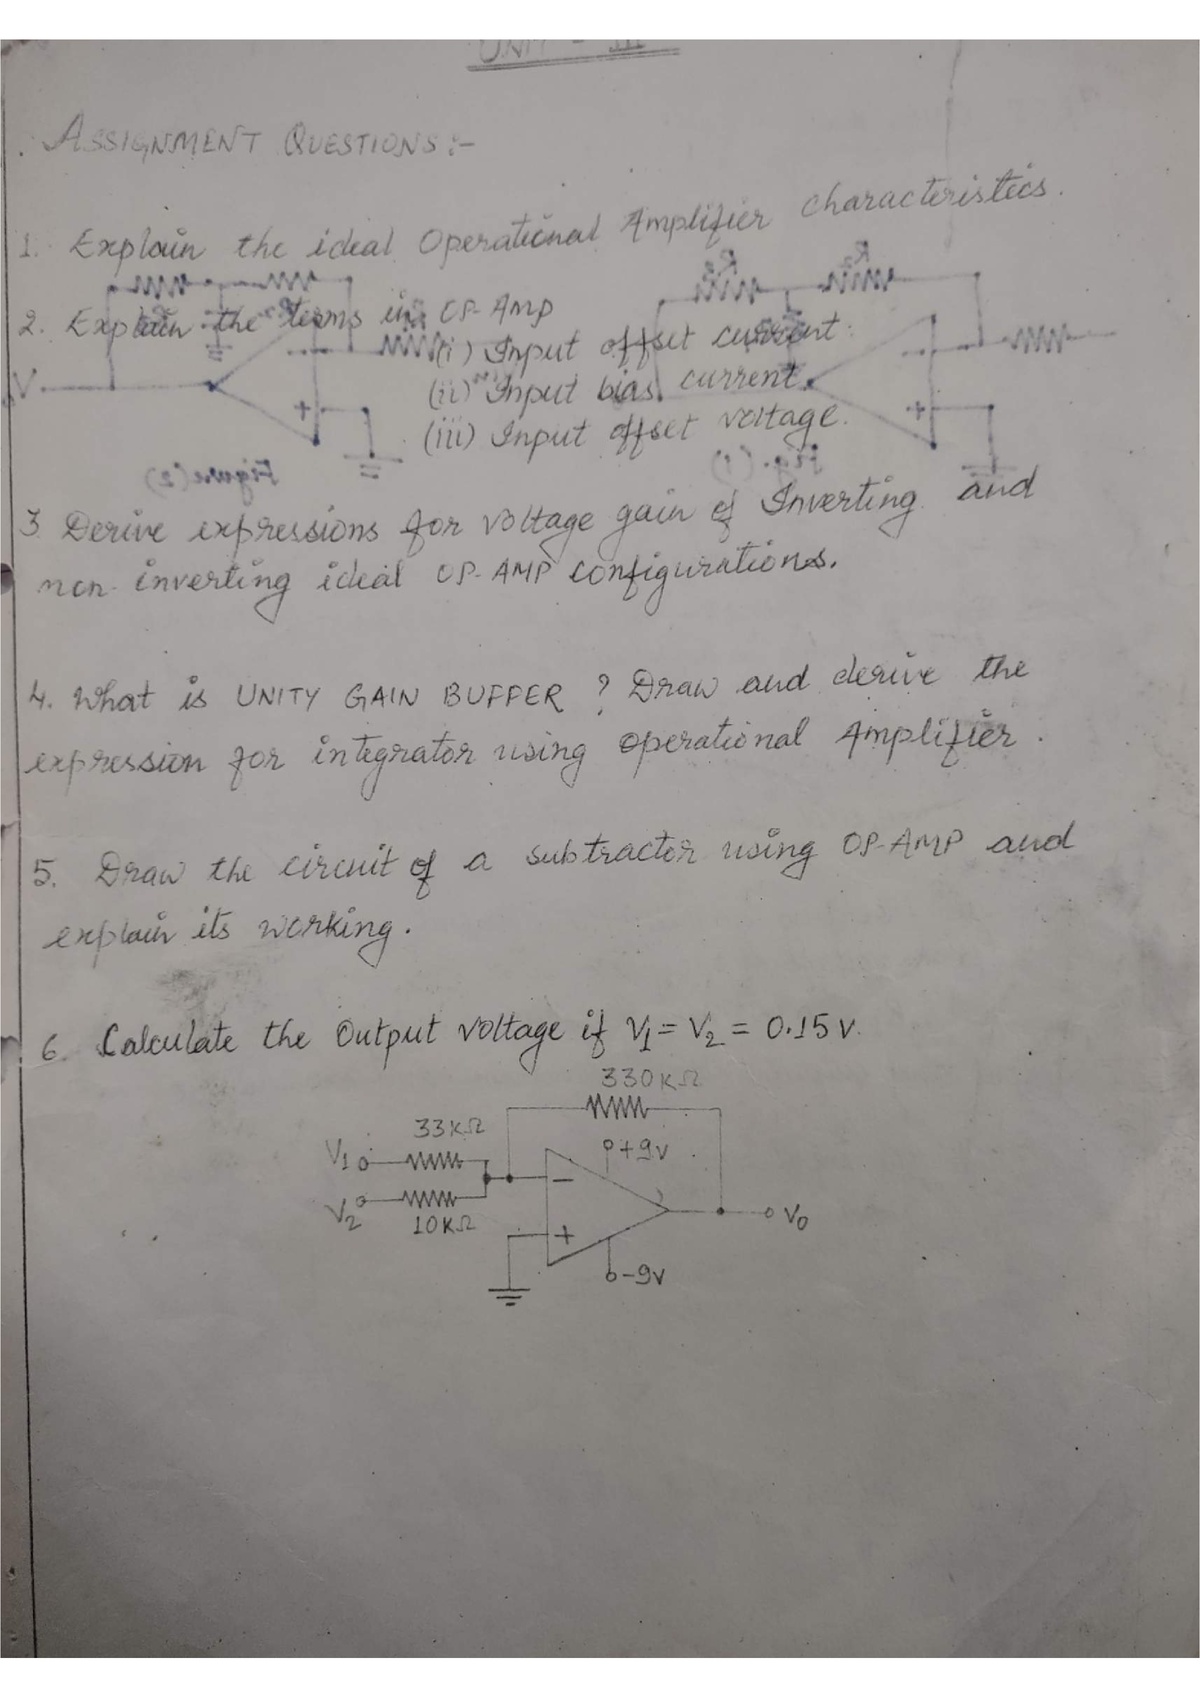 UNIT - III
ASSIGNMENT QUESTIONS:-
1. Explain the ideal Operational Amplifier characteristics.
2. Explain the terms in OP-AMP
(i) Input offset current.
(ii) Input bias current.
(iii) Input offset voltage.
3 Derive expressions for voltage gain of Inverting and
non-inverting ideal OP-AMP configurations.
4. What is UNITY GAIN BUFFER ? Draw and derive the
expression for integrator using operational Amplifier.
5. Draw the circuit of a subtractor using OP-AMP and
explain its working.
6. Calculate the Output voltage if V1 = V2 = 0.15 V.
330KΩ
33KΩ
V1
+9V
V2
10KΩ
Vo
-9V